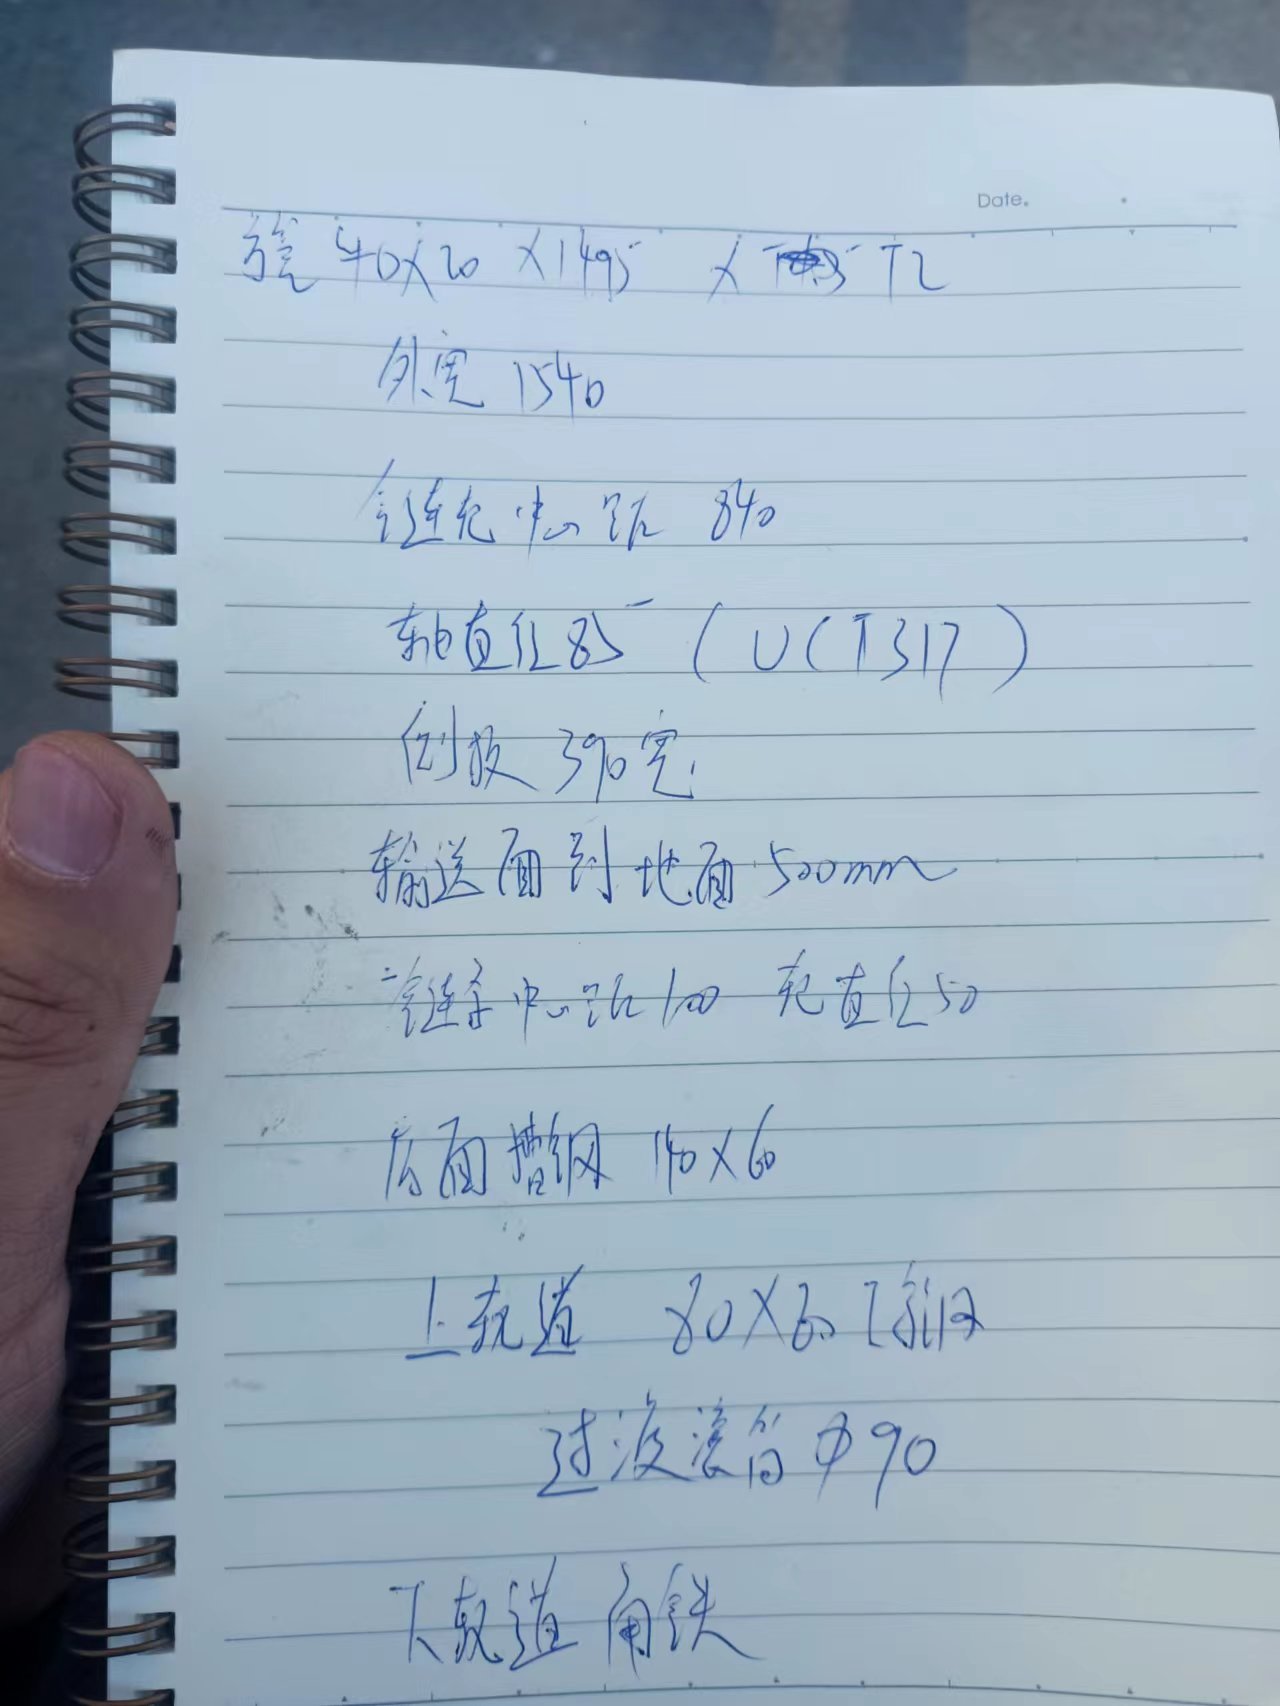 Date.
方管 40X20 X1495 X T2
外宽 1540
链轮中心距 840
轴直径85 (UCT317)
侧板 390宽
输送面到地面500mm
链条中心距100 轮直径50
后面槽钢 140X60
上轨道 80X60
过渡滚筒 Φ90
下轨道 角铁